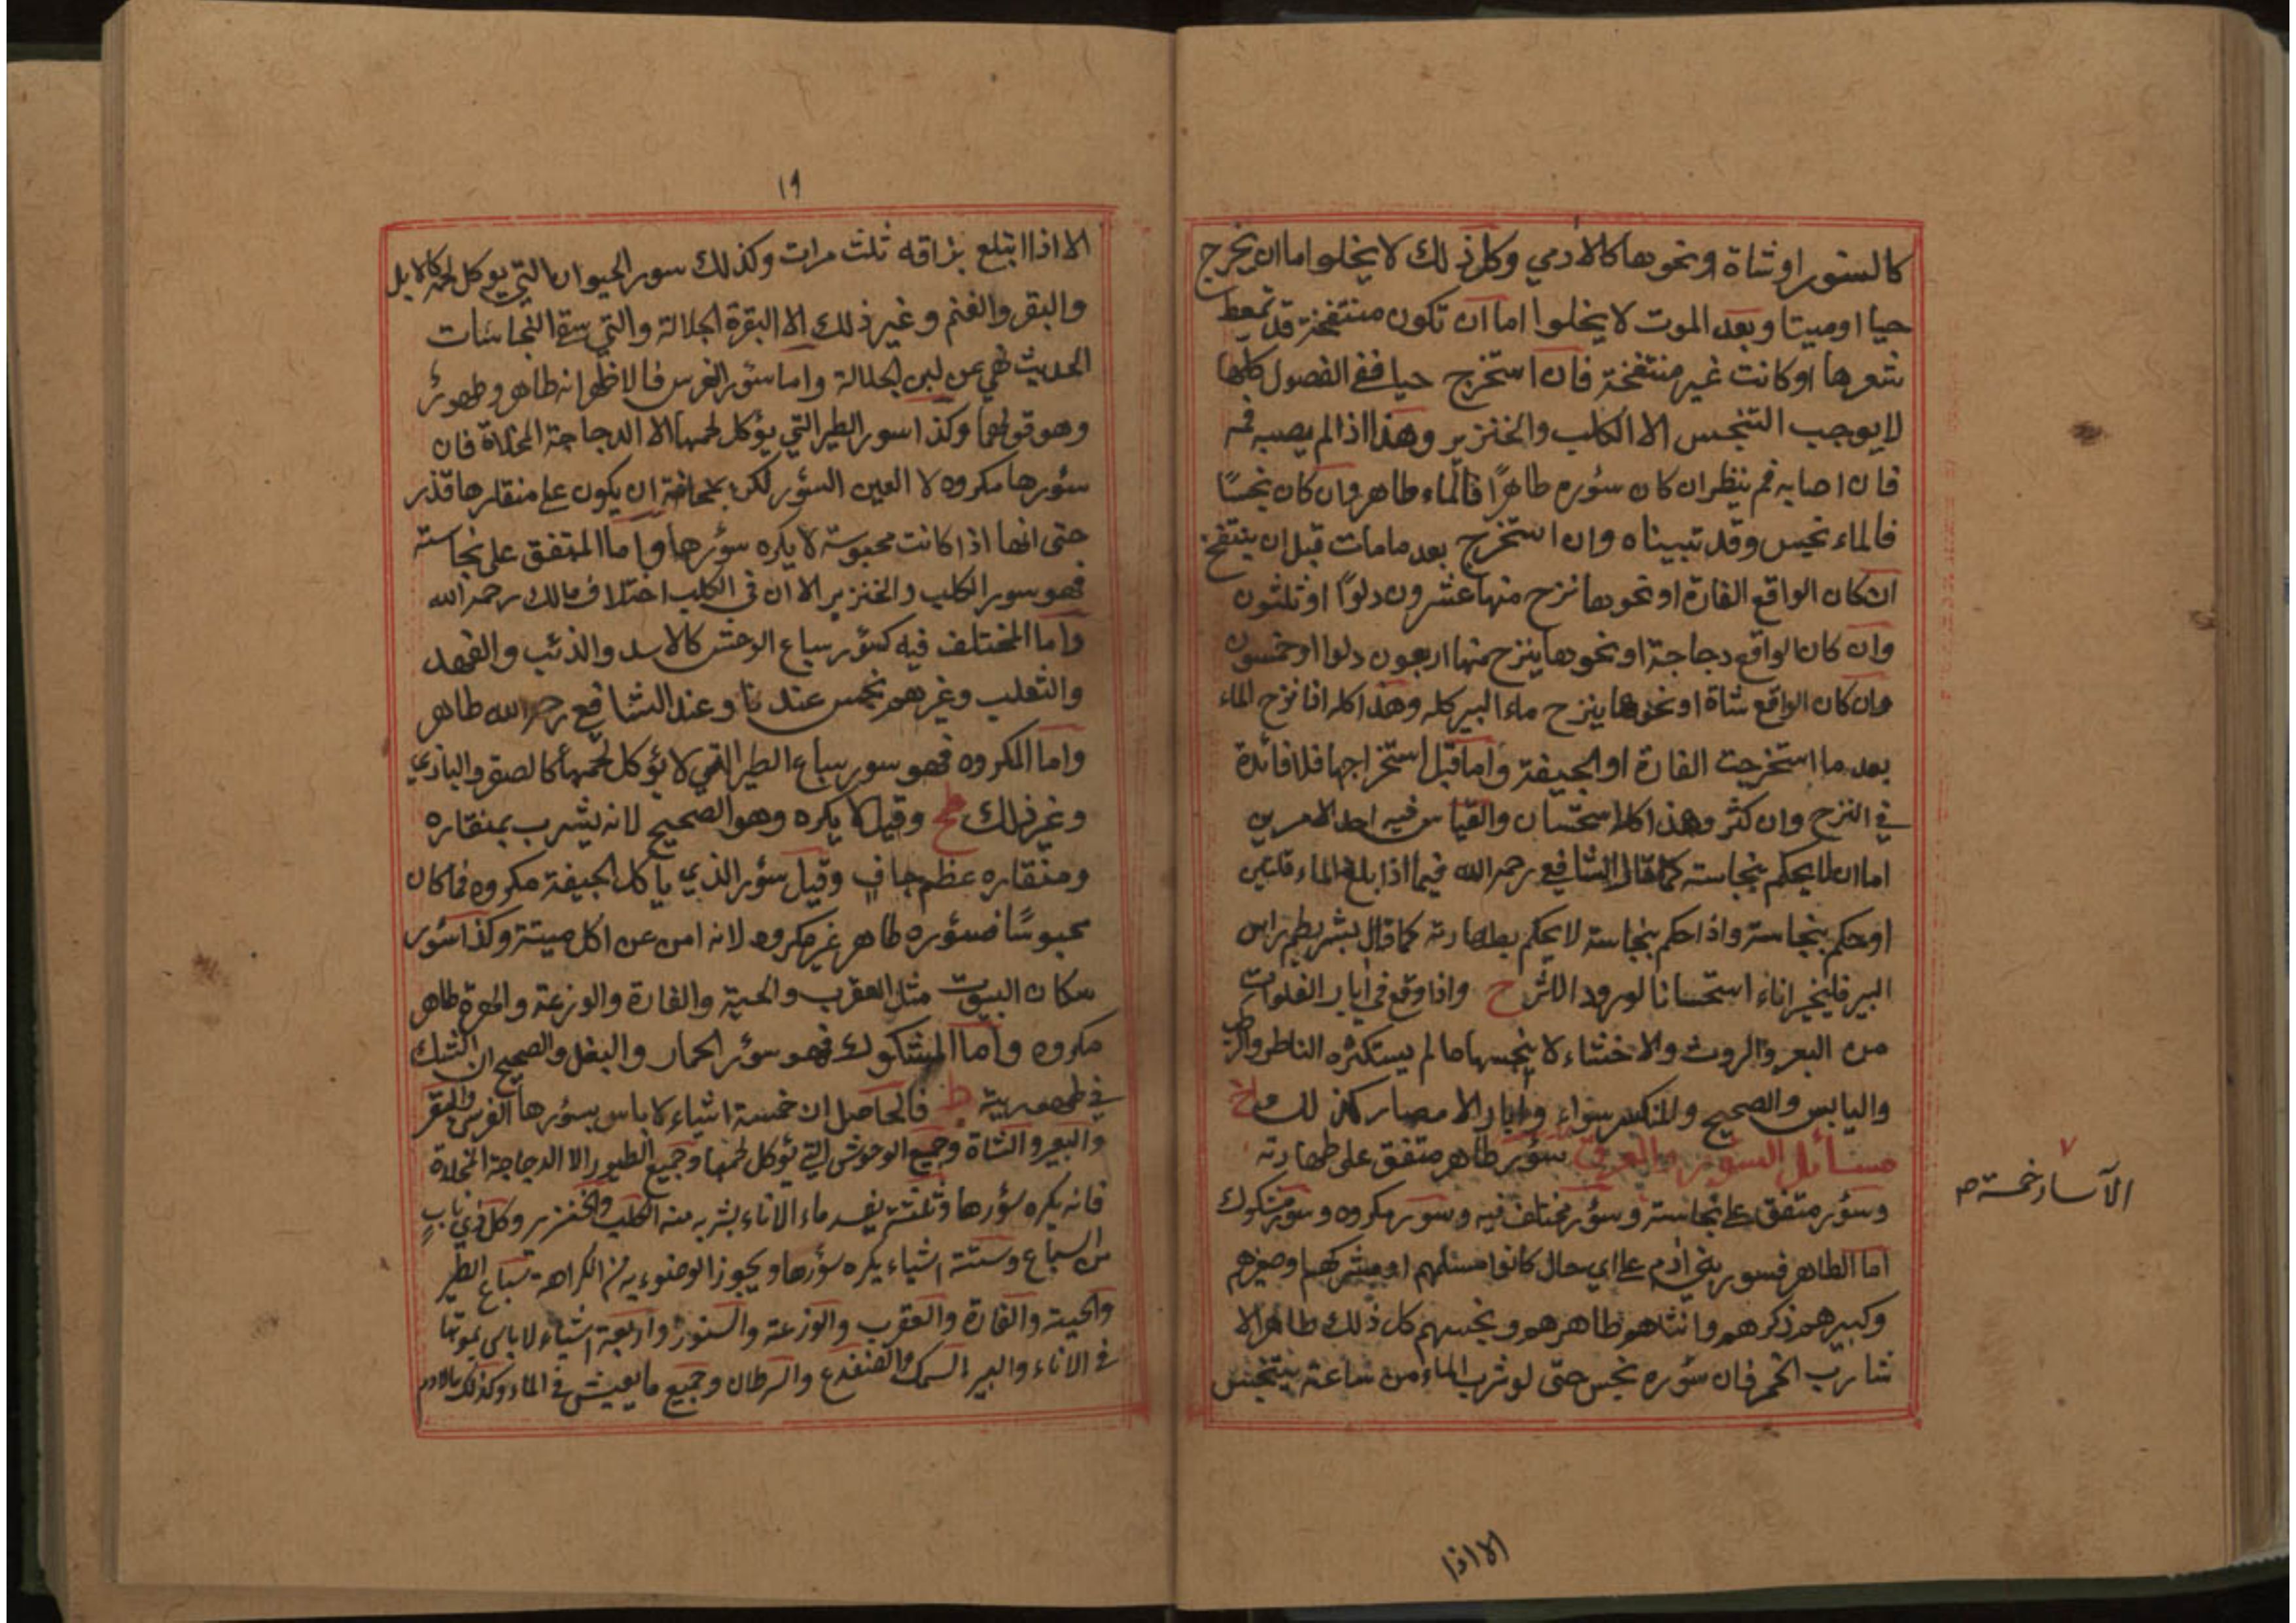 كالسنور او شاة او نحوها كالادمي وكل ذلك لا يخلوا اما ان يخرج
حيا او ميتا وبعد الموت لا يخلوا اما ان تكون منتفخة قد تمعط
شعرها او كانت غير منتفخة فان استخرج حيا ففي الفصول كلها
لا يوجب التنجس الا الكلب والخنزير وهذا اذا لم يصبه فمه
فان اصابه فم ينظر ان كان سؤره طاهرًا فالماء طاهر وان كان نجسًا
فالماء نجس وقد تبيناه وان استخرج بعد ما مات قبل ان ينتفخ
ان كان الواقع الفارة او نحوها نزح منها عشرون دلوًا او ثلثون
وان كان الواقع دجاجة او نحوها ينزح منها اربعون دلوا او خمسون
وان كان الواقع شاة او نحوها ينزح ماء البير كله وهذا كله اذا نزح الماء
بعد ما استخرجت الفارة او الجيفة واما قبل استخراجها فلا فائدة
في النزح وان كثر وهذا كله استحسان والقياس فيه احد الامرين
اما ان لا يحكم بنجاسته كما قال الشافعي رحمه الله فيما اذا بلغ الماء قلتين
او حكم بنجاسته واذا حكم بنجاسته لا يحكم بطهارته كما قال بشر يطم راس
البير فليخير اناء استحسانا لورود الاثر ح واذا وقع في ابار الفلوات
من البعر والروث والاخثاء لا ينجسها ما لم يستكثره الناظر والرطب
واليابس والصحيح والمنكسر سواء وابار الامصار كذلك
مسائل السؤر والعرق سؤر طاهر متفق على طهارته
وسؤر متفق على نجاسته وسؤر مختلف فيه وسور مكروه وسؤر مشكوك
اما الطاهر فسور بني ادم على اي حال كانوا مسلمهم او مشركهم وصغيرهم
وكبيرهم ذكرهم وانثاهم طاهرهم ونجسهم كل ذلك طاهر الا
شارب الخمر فان سؤره نجس حتى لو شرب الماء من ساعته يتنجس
الآسار خمسة
الا اذا
١٩
الا اذا ابتلع بزاقه ثلث مرات وكذلك سور الحيوان التي يوكل لحمه كالابل
والبقر والغنم وغير ذلك الا البقرة الجلالة والتي النجاسات
الحديث نهي عن لبن الجلالة واما سؤر الفرس فالاظهر انه طاهر وطهور
وهو قولهما وكذا سور الطير التي يؤكل لحمها الا الدجاجة المخلاة فان
سؤرها مكروه لا لعين السؤر لكن لمخافة ان يكون على منقارها قذر
حتى انها اذا كانت محبوسة لا يكره سؤرها واما المتفق على نجاسته
فهو سور الكلب والخنزير الا ان في الكلب اختلاف مالك رحمه الله
واما المختلف فيه كسؤر سباع الوحش كالاسد والذئب والفهد
والثعلب وغيرهم نجس عندنا وعند الشافعي رحمه الله طاهر
واما المكروه فهو سور سباع الطير التي لا يؤكل لحمها كالصقر والبازي
وغير ذلك وقيل لا يكره وهو الصحيح لانه يشرب بمنقاره
ومنقاره عظم جاف وقيل سؤر الذي ياكل الجيفة مكروه فما كان
محبوسًا فسؤره طاهر غير مكروه لانه امن عن اكل ميتة وكذا سؤر
سكان البيوت مثل العقرب والحية والفارة والوزغة والهرة طاهر
مكروه واما المشكوك فهو سؤر الحمار والبغل والصحيح ان الشك
في طهوريته ط فالحاصل ان خمسة اشياء لا باس بسؤرها الفرس والبقر
والبعير والشاة وجميع الوحوش التي يؤكل لحمها وجميع الطيور الا الدجاجة المخلاة
فانه يكره سؤرها وثلثة يفسد ماء الاناء بشربه منه الكلب والخنزير وكل ذي ناب
من السباع وستة اشياء يكره سؤرها ويجوز الوضوء به مع الكراهة سباع الطير
والحية والفارة والعقرب والوزغة والسنور واربعة اشياء لا باس بموتها
في الاناء والبير السمك والضفدع والسرطان وجميع ما يعيش في الماء وكذلك